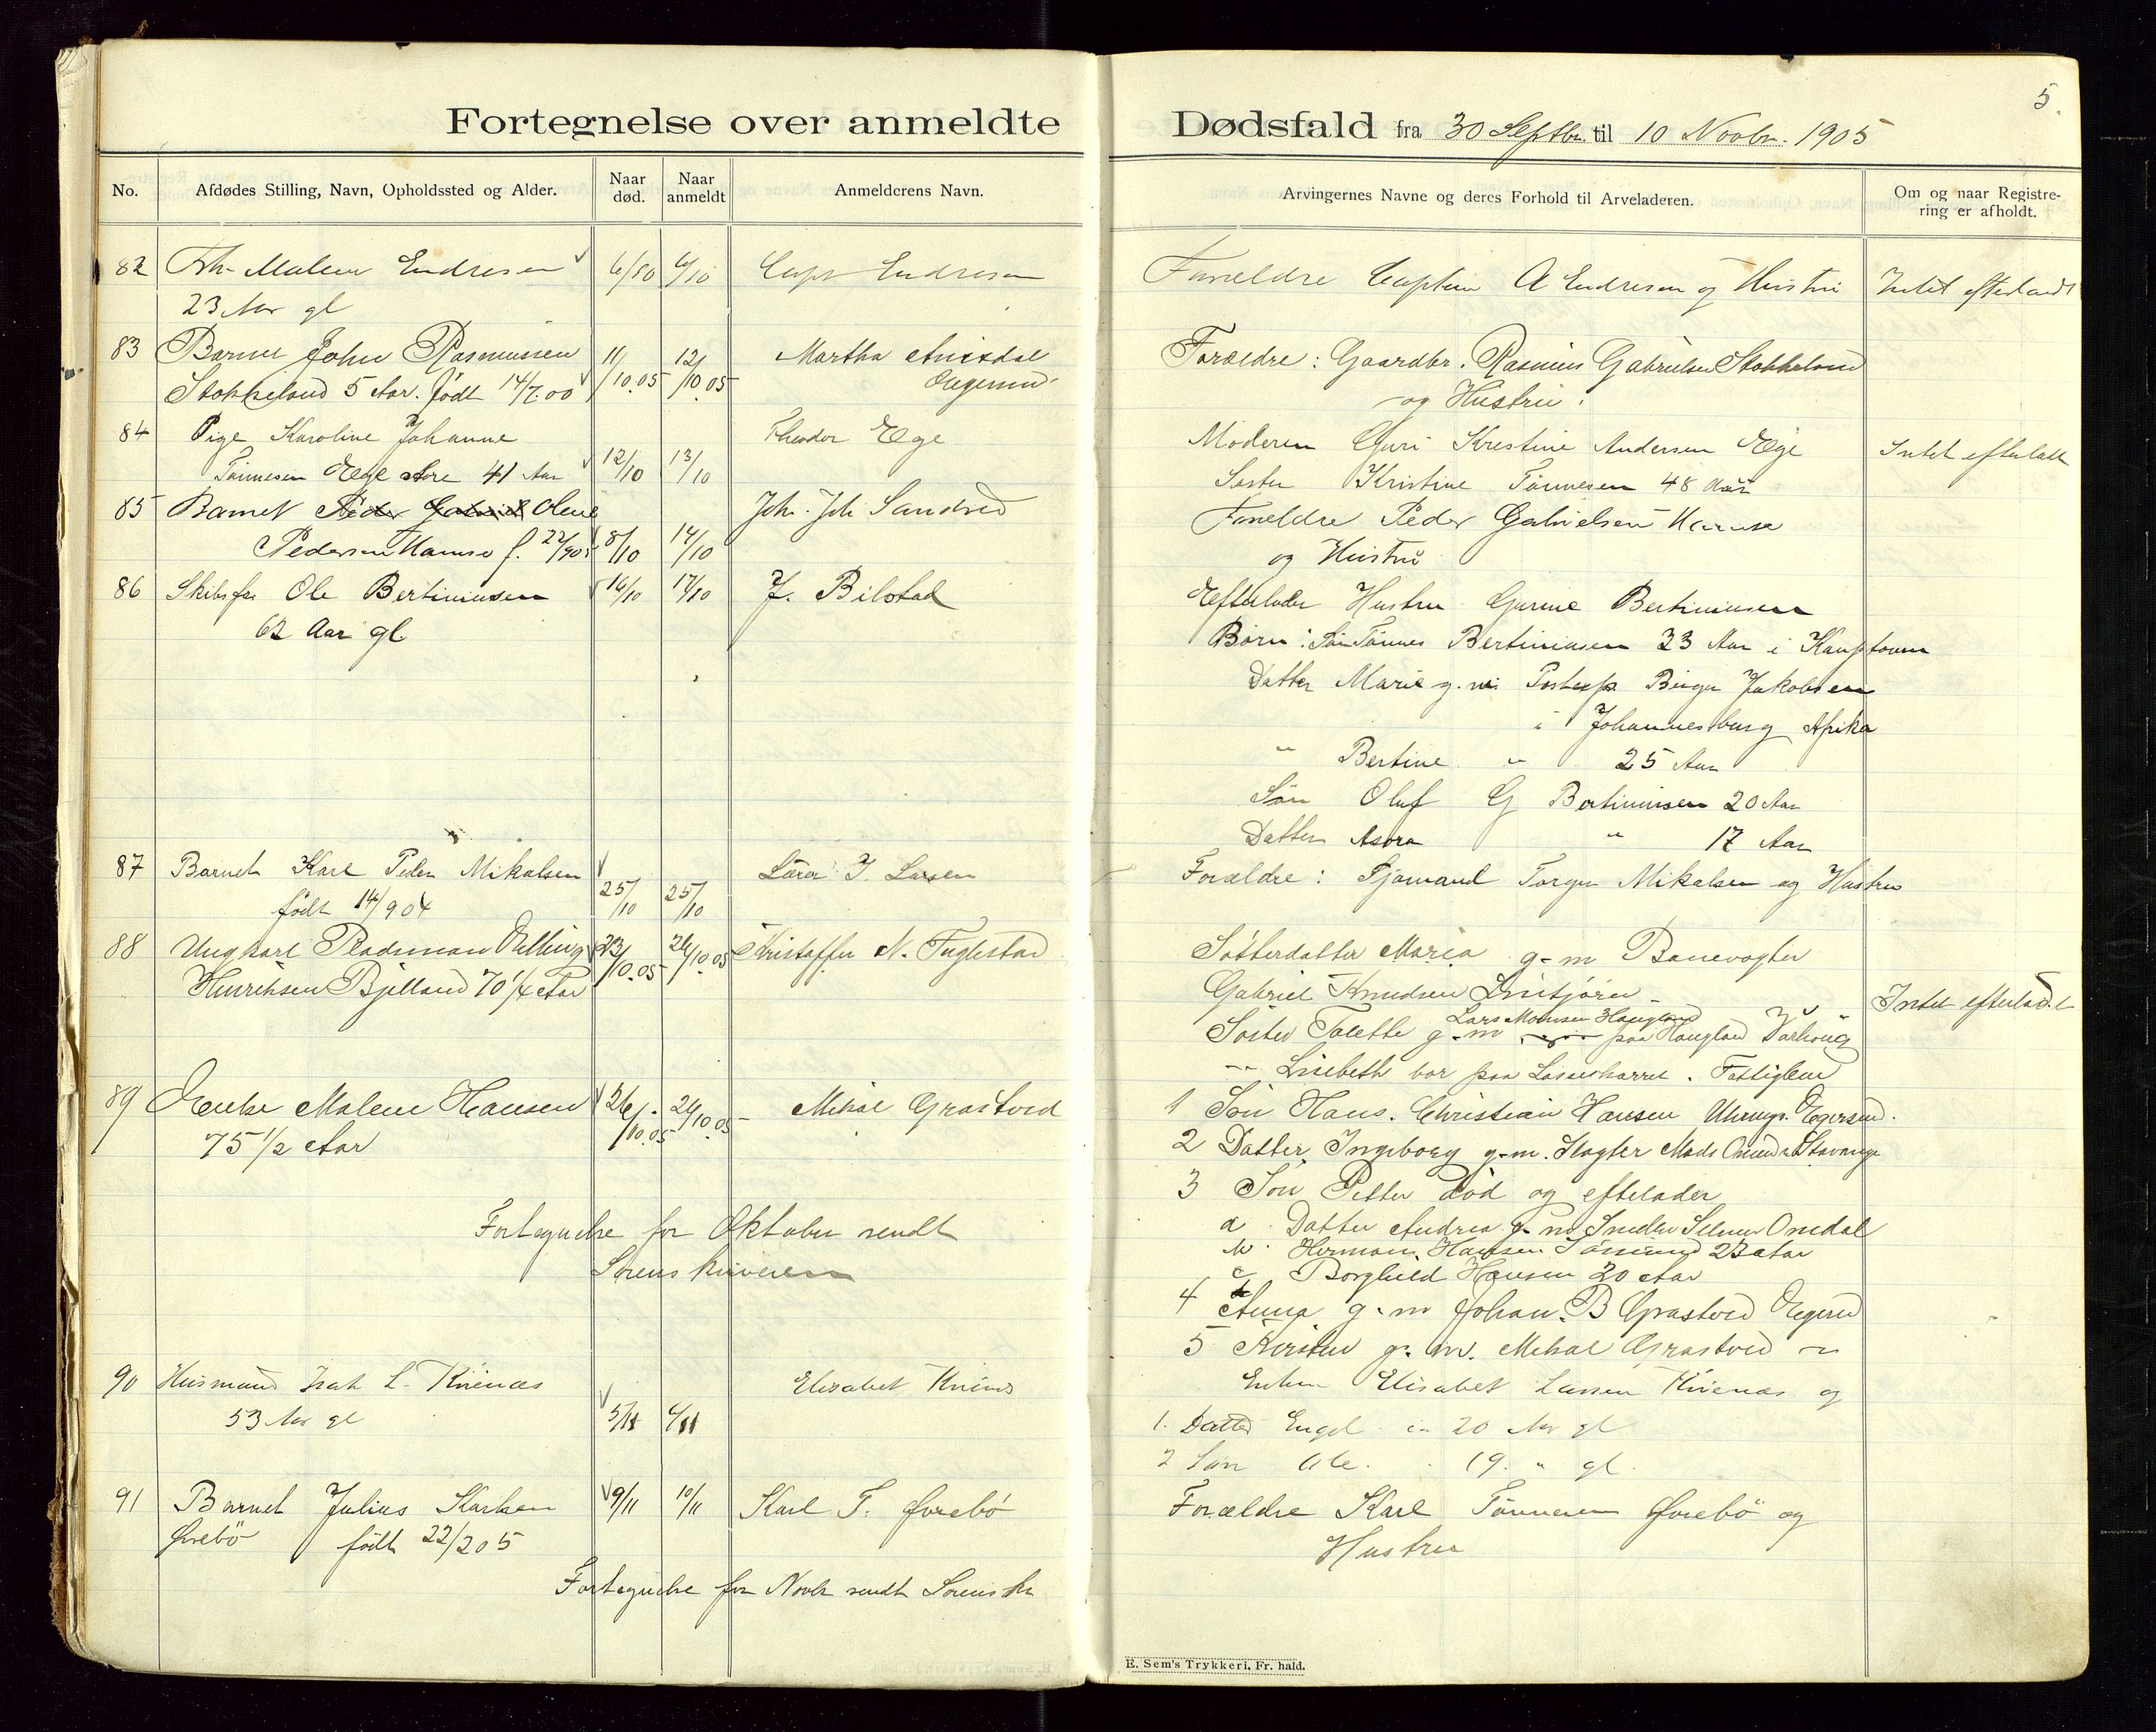 5.
Fortegnelse over anmeldte Dødsfald fra 30 Septbr. til 10 Novbr. 1905
No.
Afdødes Stilling, Navn, Opholdssted og Alder.
Naar død.
Naar anmeldt
Anmelderens Navn.
Arvingernes Navne og deres Forhold til Arveladeren.
Om og naar Registrering er afholdt.
82 Malene Endresen 6/10 Capt Endresen Forældre Captein A Endresen og Hustru Intet efterladt
23 Aar gl
83 Barnet John Rasmussen 11/10.05 12/10.05 Martha Forældre: Gaardbr. Rasmus Gabrielsen Stokkeland
Stokkeland 5 Aar. født 14/7.00 og Hustru.
84 Pige Karoline Johanne Theodor Ege Moderen Guri Kristine Andersen Ege Intet efterladt
Tønnesen Ege store 41 Aar 12/10 13/10 Søster Kristine Tønnesen 48 Aar
85 Barnet Peder Gabriel Olene Joh. Joh Sandved Forældre Peder Gabrielsen
Pedersen f. 8/10 14/10 og Hustru
86 Skibsfør Ole Bertiniusen 16/10 17/10 J. Bilstad Efterlader Hustru Gurine Bertiniusen
62 Aar gl Børn: Søn Tønnes Bertiniusen 33 Aar i Kauptown
Datter Marie g. m. Birger Jakobsen
i Johannesburg Afrika
" Bertine " 25 Aar
Søn Oluf G Bertiniusen 20 Aar
Datter Asora " 17 Aar
87 Barnet Karl Peder Mikalsen 25/10 25/10 J. Larsen Forældre: Sjømand Torger Mikalsen og Hustru
født 14/904
88 Ungkarl Rasmus 23/10.05 26/10.05 Kristoffer N. Fuglestad Søsterdatter Maria g-m Banevogter
Henriksen Bjelland 70 1/4 Aar Gabriel Knudsen
Intet efterladt
Lars Monsen Haugland
Søster Tolette g-m paa Haugland Varhoug
" Lisebeth bor paa . Fattiglem
89 Enke Malene Hansen 26/10.05 26/10.05 Mikal Grastved 1 Søn Hans. Christian Hansen Uhrmgr. Egersund.
75 1/2 Aar 2 Datter Ingeborg g-m. Slagter Mads Stavanger
3 Søn Petter død og efterlader
a. Datter Andrea g-m Omdal
b. Herman Hansen Sømand 23 Aar
c Borghild Hansen 20 Aar
Fortegnelse for Oktober sendt
Sorenskriveren
4 Anna g-m Johan B Grastved Egersd
5 Kirsten g. m. Mikal Grastved "
90 Husmand Isak L. Knienæs Elisabet Enken Elisabet Larsen og
53 Aar gl 5/11 6/11 1. Datter Engel 20 Aar gl
2 Søn Ole 19 " gl.
91 Barnet Julius Karlsen 9/11 10/11 Karl T. Øvrebø Forældre Karl Tønnesen Øvrebø og
Øvrebø født 22/205 Hustru
Fortegnelse for Novbr sendt Sorenskr
E. Sem's Trykkeri, Fr. hald.